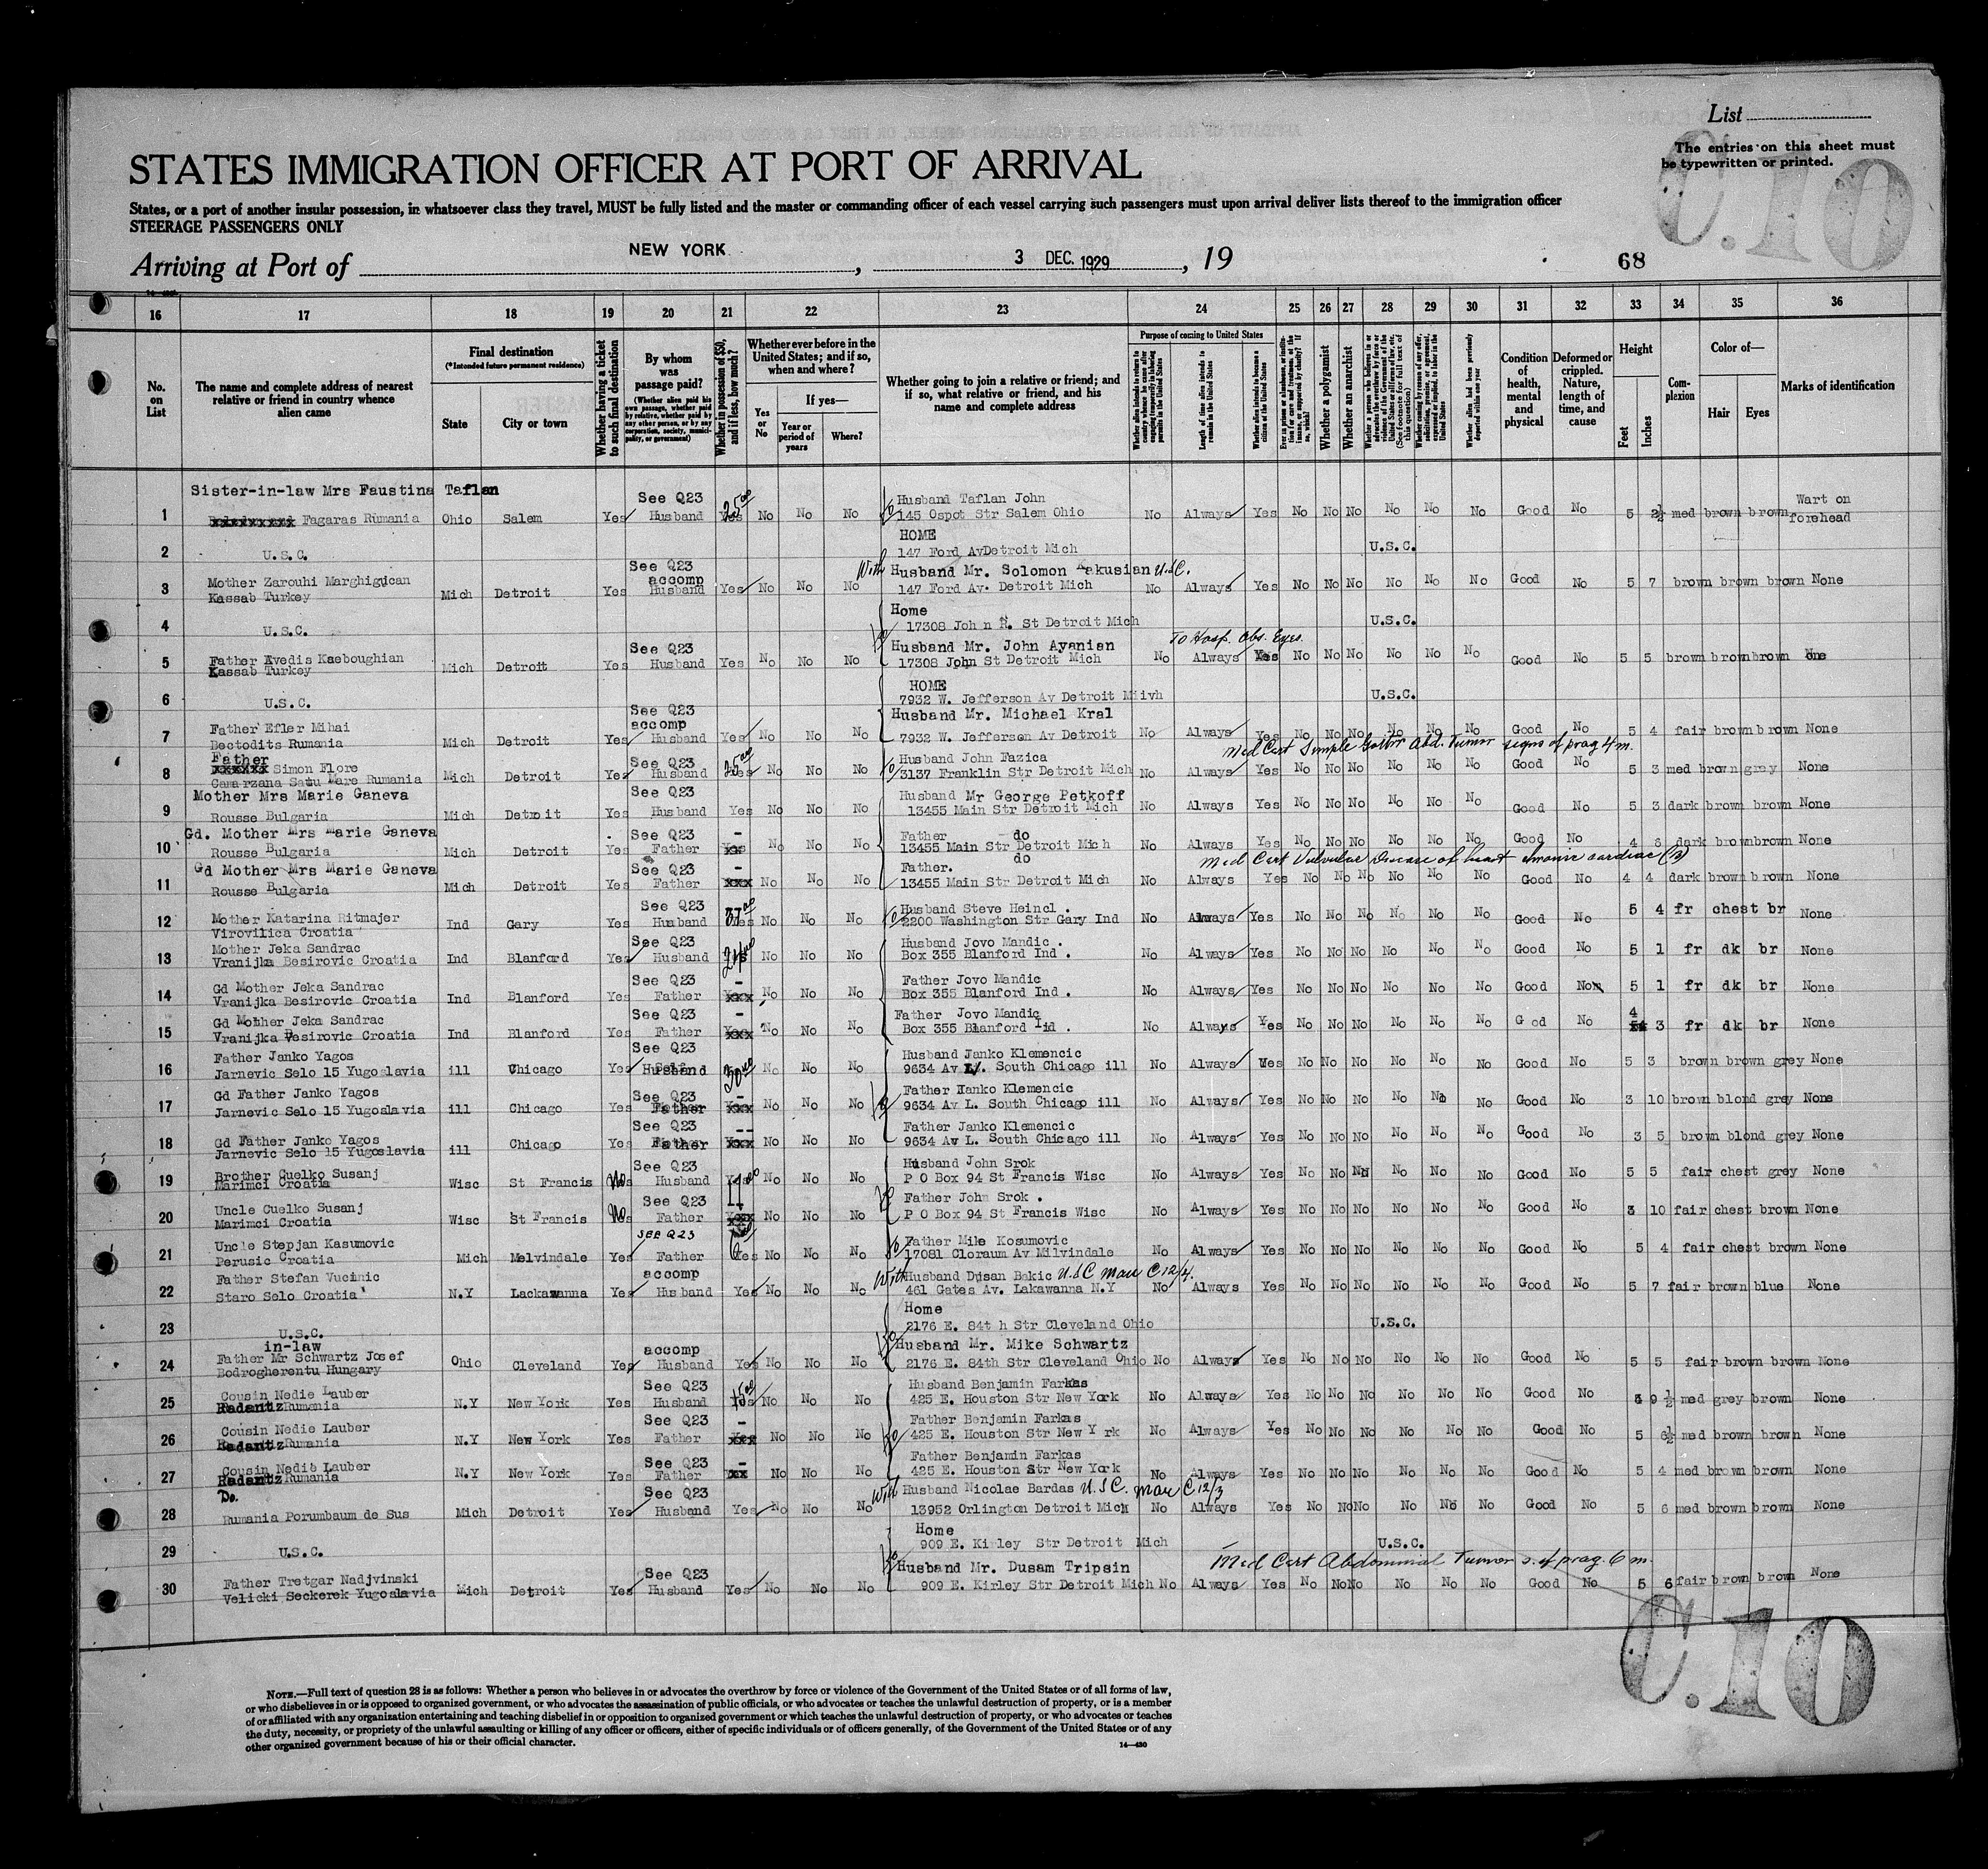 List
The entries on this sheet must
be typewritten or printed.
C.10
STATES IMMIGRATION OFFICER AT PORT OF ARRIVAL
States, or a port of another insular possession, in whatsoever class they travel, MUST be fully listed and the master or commanding officer of each vessel carrying such passengers must upon arrival deliver lists thereof to the immigration officer
STEERAGE PASSENGERS ONLY
Arriving at Port of NEW YORK, 3 DEC. 1929, 19 68
16 17 18 19 20 21 22 23 24 25 26 27 28 29 30 31 32 33 34 35 36
No. on List
The name and complete address of nearest relative or friend in country whence alien came
Final destination
(*Intended future permanent residence)
State
City or town
Whether having a ticket to such final destination
By whom was passage paid?
(Whether alien paid his own passage, whether paid by relative, whether paid by any other person, or by any corporation, society, municipality, or government)
Whether in possession of $50, and if less, how much?
Whether ever before in the United States; and if so, when and where?
Yes or No
If yes—
Year or period of years
Where?
Whether going to join a relative or friend; and if so, what relative or friend, and his name and complete address
Purpose of coming to United States
Length of time alien intends to remain in the United States
Whether alien intends to become a citizen of the United States
Whether a polygamist
Whether an anarchist
Condition of health, mental and physical
Deformed or crippled. Nature, length of time, and cause
Height
Feet
Inches
Complexion
Color of—
Hair
Eyes
Marks of identification
Sister-in-law Mrs Faustina Taflan See Q23 Husband Taflan John Wart on
1 Fagaras Rumania Ohio Salem Yes Husband 25 No No No 145 Ospot Str Salem Ohio No Always Yes No No No No No No Good No 5 2½ med brown brown forehead
HOME
2 U.S.C. 147 Ford Av Detroit Mich U.S.C.
Mother Zarouhi Marghigucan See Q23 accomp With Husband Mr. Solomon Yakusian U.S.C.
3 Kassab Turkey Mich Detroit Yes Husband Yes No No No 147 Ford Av. Detroit Mich No Always Yes No No No No No No Good No 5 7 brown brown brown None
Home
4 U.S.C. 17308 John R. St Detroit Mich U.S.C.
Father Avedis Kaeboughian See Q23 Husband Mr. John Ayanian To Hosp. Obs. Eyes.
5 Kassab Turkey Mich Detroit Yes Husband Yes No No No 17308 John St Detroit Mich No Always Yes No No No No No No Good No 5 5 brown brown brown None
HOME
6 U.S.C. 7932 W. Jefferson Av Detroit Miivh U.S.C.
Father Efler Mihai See Q23 accomp Husband Mr. Michael Kral
7 Bectodits Rumania Mich Detroit Yes Husband Yes No No No 7932 W. Jefferson Av Detroit No Always Yes No No No No No No Good No 5 4 fair brown brown None
Med Cert Simple Goiter Abd. Tumor signs of preg 4 m.
Father
Simon Flore See Q23 Husband John Fazica
8 Camarzana Satu Mare Rumania Mich Detroit Yes Husband 25 No No No 3137 Franklin Str Detroit Mich No Always Yes No No No No No No Good No 5 3 med brown gray None
Mother Mrs Marie Ganeva See Q23 Husband Mr George Petkoff
9 Rousse Bulgaria Mich Detroit Yes Husband Yes No No No 13455 Main Str Detroit Mich No Always Yes No No No No No No Good No 5 3 dark brown brown None
Gd. Mother Mrs Marie Ganeva See Q23 - Father do
10 Rousse Bulgaria Mich Detroit Yes Father No No No 13455 Main Str Detroit Mich No Always Yes No No No No No No Good No 4 6 dark brown brown None
Gd Mother Mrs Marie Ganeva See Q23 - Father. do Med Cert Valvular Disease of heart
11 Rousse Bulgaria Mich Detroit Yes Father xxx No No No 13455 Main Str Detroit Mich No Always Yes No No No No No No Good No 4 4 dark brown brown None
Mother Katarina Ritmajer See Q23 Husband Steve Heincl.
12 Virovilica Croatia Ind Gary Yes Husband 37 No No No 2200 Washington Str Gary Ind No Always Yes No No No No No No Good No 5 4 fr chest br None
Mother Jeka Sandrac See Q23 Husband Jovo Mandic.
13 Vranijka Besirovic Croatia Ind Blanford Yes Husband No No No Box 355 Blanford Ind. No Always Yes No No No No No No Good No 5 1 fr dk br None
Gd Mother Jeka Sandrac See Q23 - Father Jovo Mandic
14 Vranijka Besirovic Croatia Ind Blanford Yes Father xxx No No No Box 355 Blanford Ind. No Always Yes No No No No No No Good Non 5 1 fr dk br None
Gd Mother Jeka Sandrac See Q23 - Father Jovo Mandic
15 Vranijka Besirovic Croatia Ind Blanford Yes Father xxx No No No Box 355 Blanford Iid. No Always Yes No No No No No No G od No 4 3 fr dk br None
Father Janko Yagos See Q23 Husband Janko Klemencic
16 Jarnevic Selo 15 Yugoslavia ill Chicago Yes Husband 30 No No No 9634 Av L. South Chicago ill No Always Yes No No No No No No Good No 5 3 brown brown grey None
Gd Father Janko Yagos See Q23 - Father Janko Klemencic
17 Jarnevic Selo 15 Yugoslavia ill Chicago Yes Father xxx No No No 9634 Av L. South Chicago ill No Always Yes No No No No No No Good No 3 10 brown blond grey None
Gd Father Janko Yagos See Q23 -- Father Janko Klemencic
18 Jarnevic Selo 15 Yugoslavia ill Chicago Yes Father xxx No No No 9634 Av L. South Chicago ill No Always Yes No No No No No No Good No 3 5 brown blond grey None
Brother Cuelko Susanj See Q23 Husband John Srok
19 Marimci Croatia Wisc St Francis No Husband 11 No No No P O Box 94 St Francis Wisc No Always Yes No No No No No No Good No 5 5 fair chest grey None
Uncle Cuelko Susanj See Q23 Father John Srok.
20 Marimci Croatia Wisc St Francis No Father xxx No No No P O Box 94 St Francis Wisc No Always Yes No No No No No No Good No 3 10 fair chest brown None
Uncle Stepjan Kasumovic See Q23 Father Mile Kosumovic
21 Perusic Croatia Mich Melvindale Yes Father Yes No No No 17081 Cloraum Av Milvindale No Always Yes No No No No No No Good No 5 4 fair chest brown None
Father Stefan Vucinic accomp With Husband Dusan Bakic U.S.C
22 Staro Selo Croatia N.Y Lackawanna Yes Husband Yes No No No 461 Gates Av. Lakawanna N.Y No Always Yes No No No No No No Good No 5 7 fair brown blue None
Home
23 U.S.C. 2176 E. 84th Str Cleveland Ohio U.S.C.
in-law
Father Mr Schwartz Josef accomp Husband Mr. Mike Schwartz
24 Bodrogherentu Hungary Ohio Cleveland Yes Husband Yes No No No 2176 E. 84th Str Cleveland Ohio No Always Yes No No No No No No Good No 5 5 fair brown brown None
Cousin Nedie Lauber See Q23 Husband Benjamin Farkas
25 Radautz Rumania N.Y New York Yes Husband No No No 425 E. Houston Str New York No Always Yes No No No No No No Good No 9½ med grey brown None
Cousin Nedie Lauber See Q23 - Father Benjamin Farkas
26 Radautz Rumania N.Y New York Yes Father xxx No No No 425 E. Houston Str New Y rk No Always Yes No No No No No No Good No 5 6½ med brown brown None
Cousin Nedie Lauber See Q23 - Father Benjamin Farkas
27 Radautz Rumania N.Y New York Yes Father xx No No No 425 E. Houston Str New York No Always Yes No No No No No No Good No 5 4 med brown brown None
Do. See Q23 With Husband Nicolae Bardas U.S.C.
28 Rumania Porumbaum de Sus Mich Detroit Yes Husband Yes No No No 13952 Orlington Detroit Mich No Always Yes No No No No No No Good No 5 6 med brown brown None
Home
29 U.S.C. 909 E. Kirley Str Detroit Mich U.S.C.
Father Tretgar Nadjvinski See Q23 Husband Mr. Dusam Tripsin Med Cert Abdominal Tumor s. of preg. 6 m.
30 Velicki Seckerek Yugoslavia Mich Detroit Yes Husband Yes No No No 909 E. Kirley Str Detroit Mich No Always Yes No No No No No No Good No 5 6 fair brown brown None
C.10
NOTE.—Full text of question 28 is as follows: Whether a person who believes in or advocates the overthrow by force or violence of the Government of the United States or of all forms of law,
or who disbelieves in or is opposed to organized government, or who advocates the assassination of public officials, or who advocates or teaches the unlawful destruction of property, or is a member
of or affiliated with any organization entertaining and teaching disbelief in or opposition to organized government or which teaches the unlawful destruction of property, or who advocates or teaches
the duty, necessity, or propriety of the unlawful assaulting or killing of any officer or officers, either of specific individuals or of officers generally, of the Government of the United States or of any
other organized government because of his or their official character.
14—430